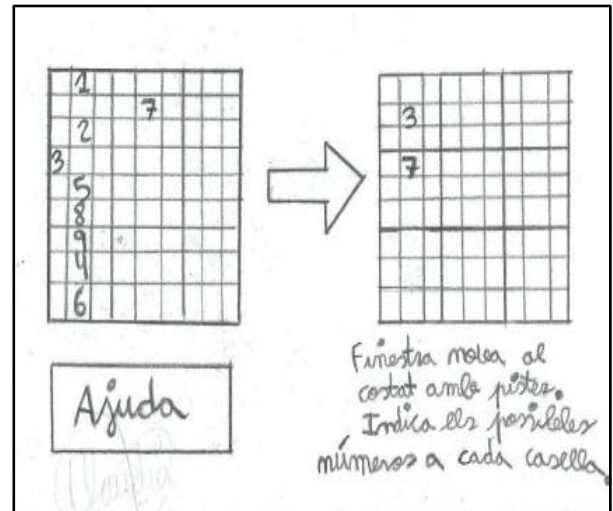 1
7
2
3
5
8
9
4
6
Ajuda
3
7
Finestra nova al
costat amb pistes.
Indica els possibles
números a cada casella.